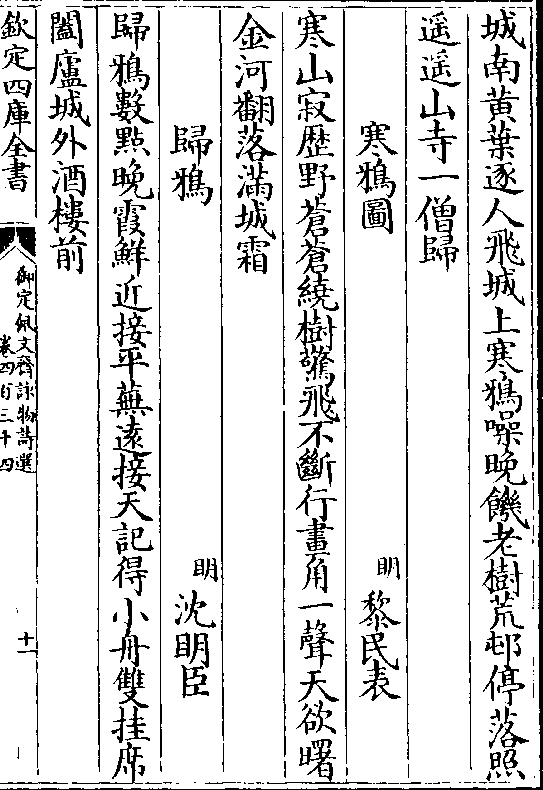 城南黃葉逐人飛城上寒鴉噪晚饑老樹荒邨停落照
遥遥山寺一僧歸
寒鴉圖
明 黎民表
寒山寂歴野蒼蒼繞樹驚飛不斷行畫角一聲天欲曙
金河翻落滿城霜
歸鴉
明 沈明臣
歸鴉數點晚霞鮮近接平蕪遠接天記得小舟雙挂席
闔廬城外酒樓前
欽定四庫全書
御定佩文齋詠物詩選
卷四百三十四
十一